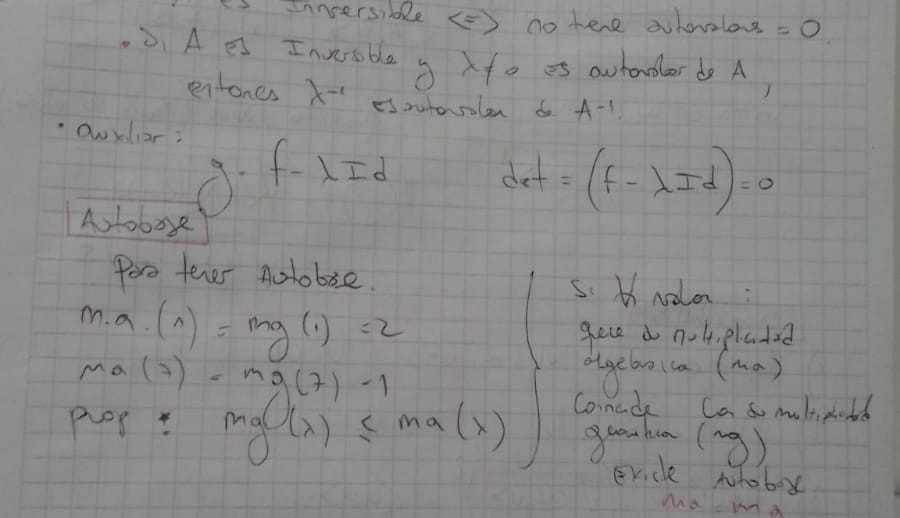 es Innversible <=> no tiene autovalores = 0
• Si A es Inversible y λ≠0 es autovalor de A,
entonces λ⁻¹ es autovalor de A⁻¹.
• auxiliar:
g = f - λ Id det = (f - λ Id) = 0
Autobase
Para tener Autobase.
m.a. (1) = mg (1) = 2
ma (7) = mg (7) = 1
prop : mg (λ) ≤ ma (λ)
Si ∀ valor :
multiplicidad
algebraica (ma)
Coincide con su multiplicidad
(mg)
Existe Autobase
ma ma